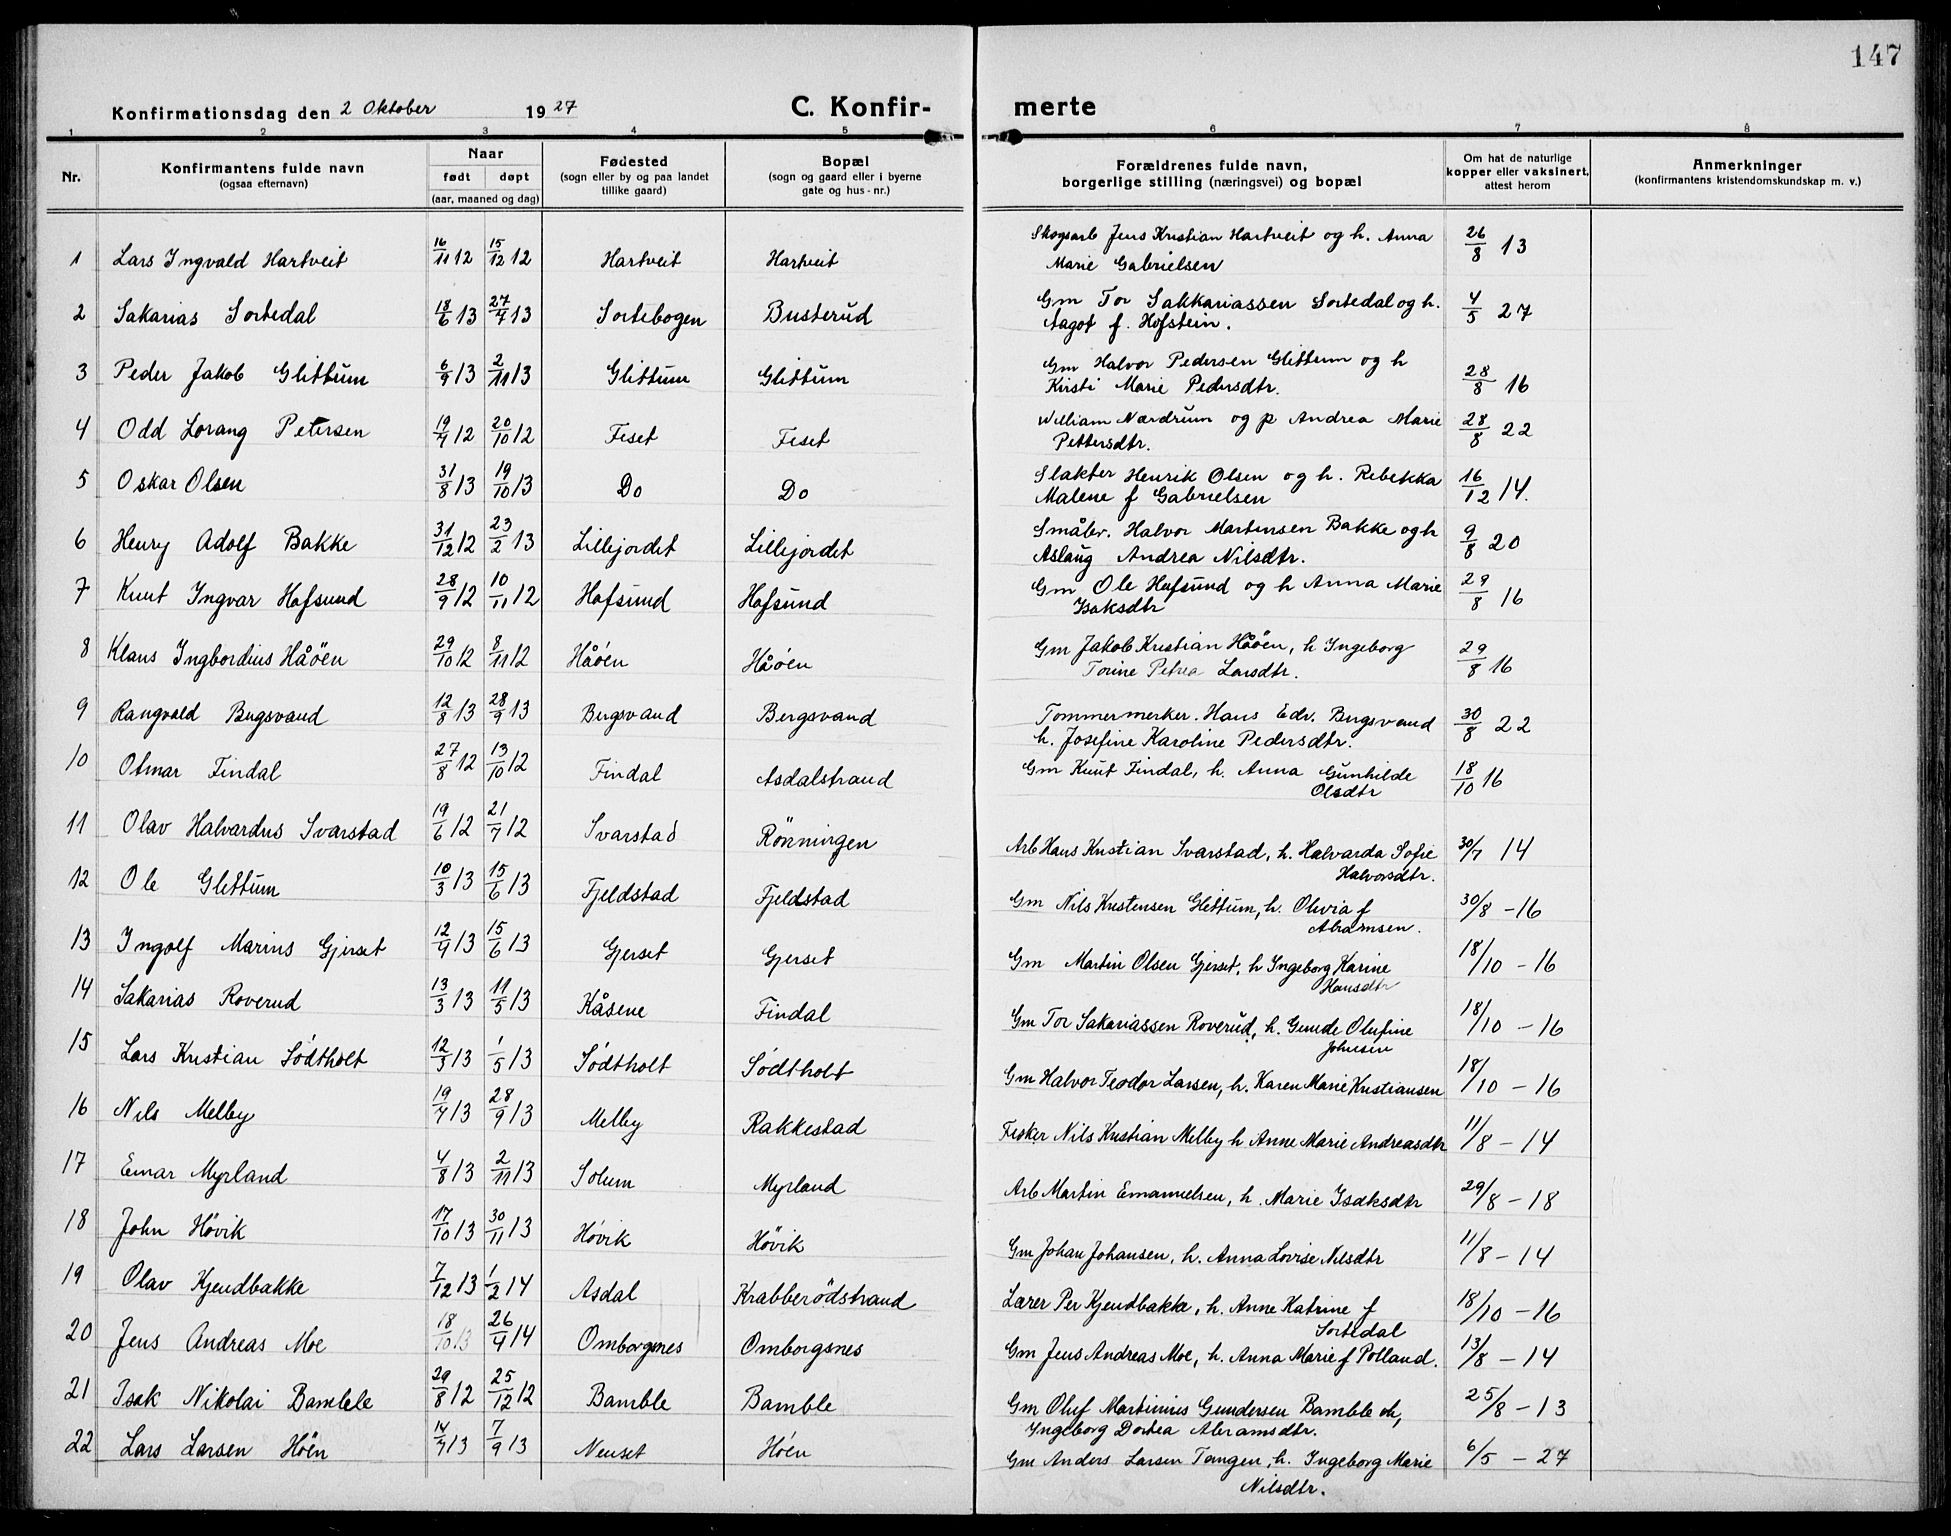 147
Konfirmationsdag den 2 Oktober 1927 C. Konfir- merte
1 2 3 4 5 6 7 8
Nr. Konfirmantens fulde navn (ogsaa efternavn) Naar født døpt (aar, maaned og dag) Fødested (sogn eller by og paa landet tillike gaard) Bopæl (sogn og gaard eller i byerne gate og hus-nr.) Forældrenes fulde navn, borgerlige stilling (næringsvei) og bopæl Om hat de naturlige kopper eller vaksinert, attest herom Anmerkninger (konfirmantens kristendomskundskap m. v.)
1 Lars Ingvald Hartveit 16/11 12 15/12 12 Hartveit Hartveit Skogsarb Jens Kristian Hartveit og h. Anna 26/8 13
Marie Gabrielsen
2 Sakarias Sortedal 18/6 13 27/7 13 Sortebogen Busterud Gm Tor Sakkariassen Sortedal og h. 4/5 27
Aagot f. Hofstein.
3 Peder Jakob Glittum 6/9 13 2/11 13 Glittum Glittum Gm Halvor Pedersen Glittum og h
Kirsti Marie Pedersdtr. 28/8 16
4 Odd Lorang Petersen 19/9 12 20/10 12 Feset Feset William Nærdrum og p Andrea Marie 28/8 22
Pettersdtr.
5 Oskar Olsen 31/8 13 19/10 13 Do Do Slakter Henrik Olsen og h. Rebekka 16/12 14.
Malene f Gabrielsen
6 Henry Adolf Bakke 31/12 12 23/2 13 Lillejordet Lillejordet Småbr. Halvor Martinsen Bakke og h 9/8 20
Aslaug Andrea Nilsdtr.
7 Knut Ingvar Hafsund 28/9 12 10/11 12 Hafsund Hafsund Gm Ole Hafsund og h Anna Marie 29/8 16
Isaksdtr
8 Klaus Ingbordius Håöen 29/10 12 8/11 12 Håöen Håöen Gm Jakob Kristian Håöen, h Ingeborg 29/8 16
Torine Petrea Larsdtr.
9 Rangvald Bergsvand 12/8 13 28/9 13 Bergsvand Bergsvand Tommermerker. Hans Edv. Bergsvand 30/8 22
h. Josefine Karoline Pedersdtr.
10 Otmar Findal 27/8 12 13/10 12 Findal Asdalstrand Gm Knut Findal, h. Anna Gunhilde 18/10 16
Olsdtr
11 Olav Halvardus Svarstad 19/6 12 21/7 12 Svarstad Rönningen Arb Hans Kristian Svarstad, h. Halvarda Sofie 30/7 14
Halvorsdtr.
12 Ole Glittum 10/3 13 15/6 13 Fjeldstad Fjeldstad Gm Nils Kristensen Glittum, h. Olivia f 30/8 - 16
Abramsen.
13 Ingolf Marius Gjerset 12/4 13 15/6 13 Gjerset Gjerset Gm Martin Olsen Gjerset, h Ingeborg Karine 18/10 - 16
Hansdtr
14 Sakarias Roverud 13/3 13 11/5 13 Kåsene Findal Gm Tor Sakariassen Roverud, h. Gunde Olufine 18/10 - 16
Johnsen
15 Lars Kristian Södtholt 12/3 13 1/5 13 Södtholt Södtholt Gm Halvor Teodor Larsen, h. Karen Marie Kristiansen 18/10 - 16
16 Nils Melby 19/7 13 28/9 13 Melby Rakkestad Fisker Nils Kristian Melby h Anne Marie Andreasdtr 11/8 - 14
17 Einar Myrland 4/8 13 2/11 13 Solum Myrland Arb Martin Emanuelsen, h. Marie Isaksdtr 29/8 - 18
18 John Hövik 17/10 13 30/11 13 Hövik Hövik Gm Johan Johansen, h. Anna Lovise Nilsdtr 11/8 - 14
19 Olav Kjendbakke 7/12 13 1/2 14 Asdal Krabberödstrand Lærer Per Kjendbakke, h. Anne Katrine f 18/10 - 16
Sortedal
20 Jens Andreas Moe 18/10 13 26/4 14 Omborgsnes Omborgsnes Gm Jens Andreas Moe, h. Anna Marie f Polland. 13/8 - 14
21 Isak Nikolai Bamble 29/8 12 25/12 12 Bamble Bamble Gm Oluf Martinius Gundersen Bamble h, 25/8 - 13
Ingeborg Dortea Abramsdtr.
22 Lars Larsen Höen 14/7 13 7/9 13 Neuset Höen Gm Anders Larsen Tangen, h. Ingeborg Marie 6/5 - 27
Nilsdtr.